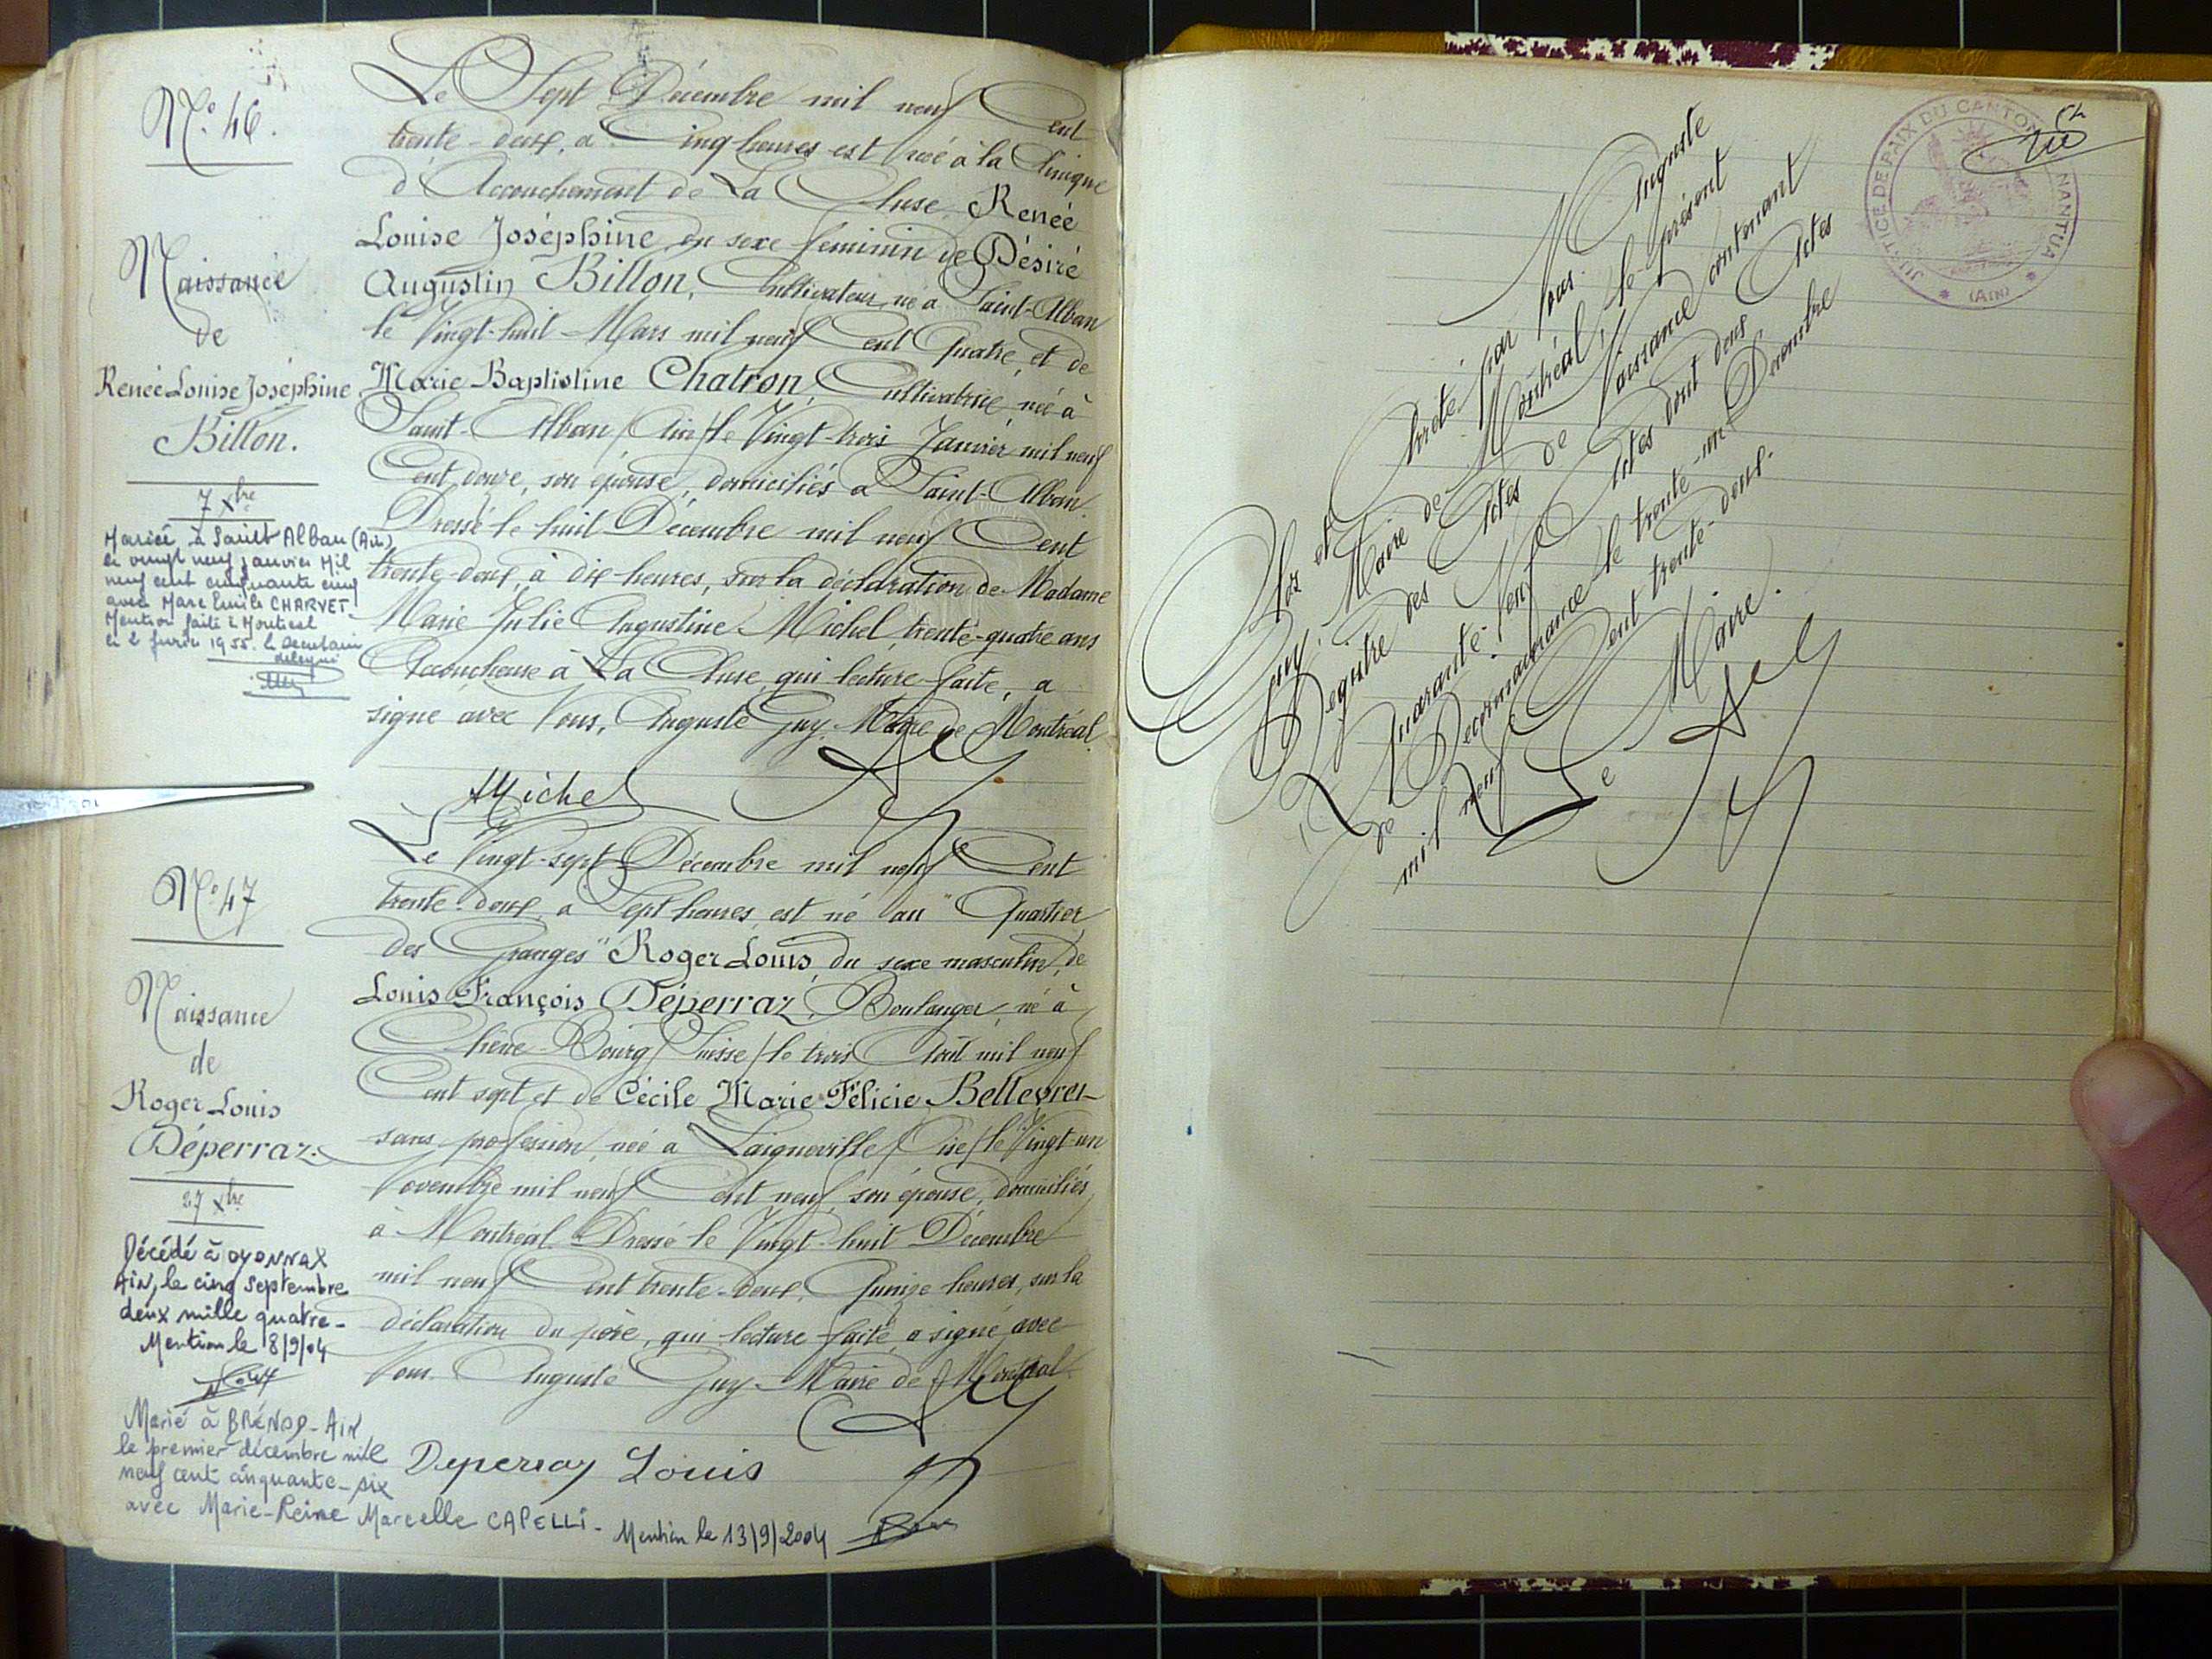 N° 46.
Naissance
de
Renée Louise Joséphine
Billon.
7 Xbre
Mariée à Saint Alban (Ain)
le vingt neuf janvier Mil
neuf cent cinquante cinq
avec Marc Emile CHARVET
Mention faite à Montréal
le 2 février 1955. Le Secrétaire
délégué
Le Sept Décembre mil neuf Cent
trente-deux, à Cinq heures est née à la Clinique
d'Accouchement de La Cluse, Renée
Louise Joséphine, du sexe féminin de Désiré
Augustin Billon, Cultivateur, né à Saint-Alban
le Vingt-huit Mars mil neuf Cent Quatre, et de
Marie Baptistine Chatron, Cultivatrice, née à
Saint-Alban /Ain/ le Vingt-trois Janvier mil neuf
Cent douze, son épouse, domiciliés à Saint-Alban.
Dressé le huit Décembre mil neuf Cent
trente-deux, à dix heures, sur la déclaration de Madame
Marie Julie Augustine Michel, trente-quatre ans
Accoucheuse à La Cluse, qui lecture faite, a
signé avec Nous, Auguste Guy, Maire de Montréal.
AMichel
N° 47
Naissance
de
Roger Louis
Déperraz.
27 Xbre
Décédé à OYONNAX
AIN, le cinq septembre
deux mille quatre-
Mention le 8/9/04
Marié à BRÉNOD-AIN
le premier décembre mil
neuf cent cinquante-six
avec Marie-Reine Marcelle CAPELLI-
Mention le 13/9/2004
Le Vingt-sept Décembre mil neuf Cent
trente-deux, à Sept heures, est né au "Quartier
des Granges" Roger Louis, du sexe masculin, de
Louis François Déperraz, Boulanger, né à
Chêne-Bourg /Suisse/ le trois Août mil neuf
Cent sept et de Cécile Marie Félicie
sans profession, née à Laigneville /Oise/ le Vingt-un
Novembre mil neuf Cent neuf, son épouse, domiciliés
à Montréal. Dressé le Vingt-huit Décembre
mil neuf Cent trente-deux, Quinze heures, sur la
déclaration du père, qui lecture faite, a signé avec
Nous. Auguste Guy Maire de Montréal.
Deperraz Louis
JUSTICE DE PAIX DU CANTON
NANTUA
(AIN)
Clos et Arrêté par Nous. Auguste
Guy. Maire de Montréal, le présent
Registre des Actes de Naissance contenant
Quarante-Sept Actes dont deux Actes
de Reconnaissance le trente-un Décembre
mil neuf Cent trente-deux.
Le Maire.